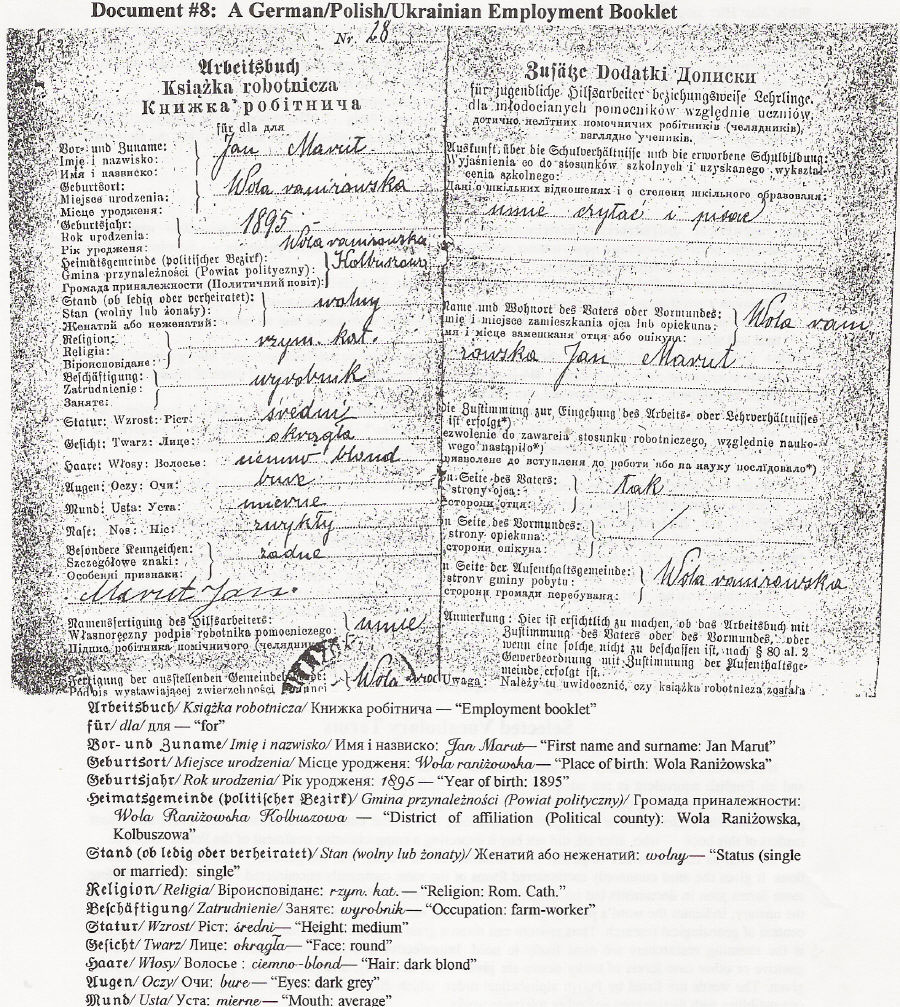 Document #8: A German/Polish/Ukrainian Employment Booklet
Nr. 28
Arbeitsbuch
Książka robotnicza
Книжка робітнича
für dla для
Vor- und Zuname:
Imię i nazwisko:
Имя і назвиско:
Jan Marut
Geburtsort:
Miejsce urodzenia:
Місце уродженя:
Wola raniżowska
Geburtsjahr:
Rok urodzenia:
Рік уродженя:
1895
Heimatsgemeinde (politischer Bezirk):
Gmina przynależności (Powiat polityczny):
Громада приналежности (Политичний повіт):
Wola raniżowska
Kolbuszowa
Stand (ob ledig oder verheiratet):
Stan (wolny lub żonaty):
Женатий або неженатий:
wolny
Religion:
Religia:
Віроисповідане:
rzym. kat.
Beschäftigung:
Zatrudnienie:
Заняте:
wyrobnik
Statur: Wzrost: Ріст:
średni
Gesicht: Twarz: Лице:
okrągła
Haare: Włosy: Волосье:
ciemno blond
Augen: Oczy: Очи:
bure
Mund: Usta: Уста:
mierne
Nase: Nos: Ніс:
zwykły
Besondere Kennzeichen:
Szczegółowe znaki:
Особенні признаки:
żadne
Marut Jan.
Namensfertigung des Hilfsarbeiters:
Własnoręczny podpis robotnika pomocniczego:
Підпис робітника помічничого
umie
Fertigung der ausstellenden
Podpis wystawiającej zwierzchności
Wola
3
Zusätze Dodatki Дописки
für jugendliche Hilfsarbeiter beziehungsweise Lehrlinge.
dla młodocianych pomocników względnie uczniów.
дотично нелітних помочничих робітників (челядників),
взглядно учеників.
Auskunft über die Schulverhältnisse und die erworbene Schulbildung:
Wyjaśnienia co do stosunków szkolnych i uzyskanego wykształ-
cenia szkolnego:
Дані о шкільних відношенях і о степени шкільного образованя:
umie czytać i pisać
Name und Wohnort des Vaters oder Vormundes:
imię i miejsce zamieszkania ojca lub opiekuna:
мя і місце замешканя отця або опікуна:
Wola rani
żowska Jan Marut
die Zustimmung zur Eingehung des Arbeits- oder Lehrverhältnisses
ist erfolgt*)
ezwolenie do zawarcia stosunku robotniczego, względnie nauko-
wego nastąpiło*)
призволене до вступленя до роботи або на науку послідовало*)
n Seite des Vaters:
strony ojca:
сторони отця:
tak
n Seite des Vormundes:
strony opiekuna:
сторони опікуна:
/
n Seite der Aufenthaltsgemeinde:
strony gminy pobytu:
сторони громади перебуваня:
Wola raniżowska
Anmerkung: Hier ist ersichtlich zu machen, ob das Arbeitsbuch mit
Zustimmung des Vaters oder des Vormundes, oder
wenn eine solche nicht zu beschaffen ist, nach § 80 al. 2
Gewerbeordnung mit Zustimmung der Aufenthaltsge-
meinde erfolgt ist.
Uwaga: Należy tu uwidocznić, czy książka robotnicza została
Arbeitsbuch/ Książka robotnicza/ Книжка робітнича — “Employment booklet”
für/ dla/ для — “for”
Vor- und Zuname/ Imię i nazwisko/ Имя і назвиско: Jan Marut— “First name and surname: Jan Marut”
Geburtsort/ Miejsce urodzenia/ Місце уродженя: Wola raniżowska— “Place of birth: Wola Raniżowska”
Geburtsjahr/ Rok urodzenia/ Рік уродженя: 1895 — “Year of birth: 1895”
Heimatsgemeinde (politischer Bezirk)/ Gmina przynależności (Powiat polityczny)/ Громада приналежности:
Wola Raniżowska Kolbuszowa — “District of affiliation (Political county): Wola Raniżowska,
Kolbuszowa”
Stand (ob ledig oder verheiratet)/ Stan (wolny lub żonaty)/ Женатий або неженатий: wolny— “Status (single
or married): single”
Religion/ Religia/ Віроисповідане: rzym. kat. — “Religion: Rom. Cath.”
Beschäftigung/ Zatrudnienie/ Занятє: wyrobnik— “Occupation: farm-worker”
Statur/ Wzrost/ Ріст: średni— “Height: medium”
Gesicht/ Twarz/ Лице: okrągła— “Face: round”
Haare/ Włosy/ Волосье : ciemno-blond— “Hair: dark blond”
Augen/ Oczy/ Очи: bure— “Eyes: dark grey”
Mund/ Usta/ Уста: mierne— “Mouth: average”